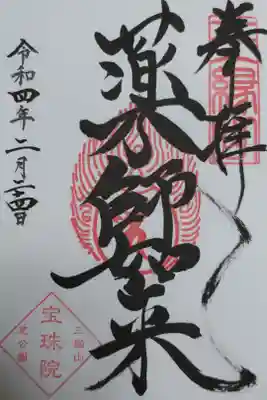 奉拝
薬師如来
令和四年二月二十四日
三縁山
宝珠院
芝公園